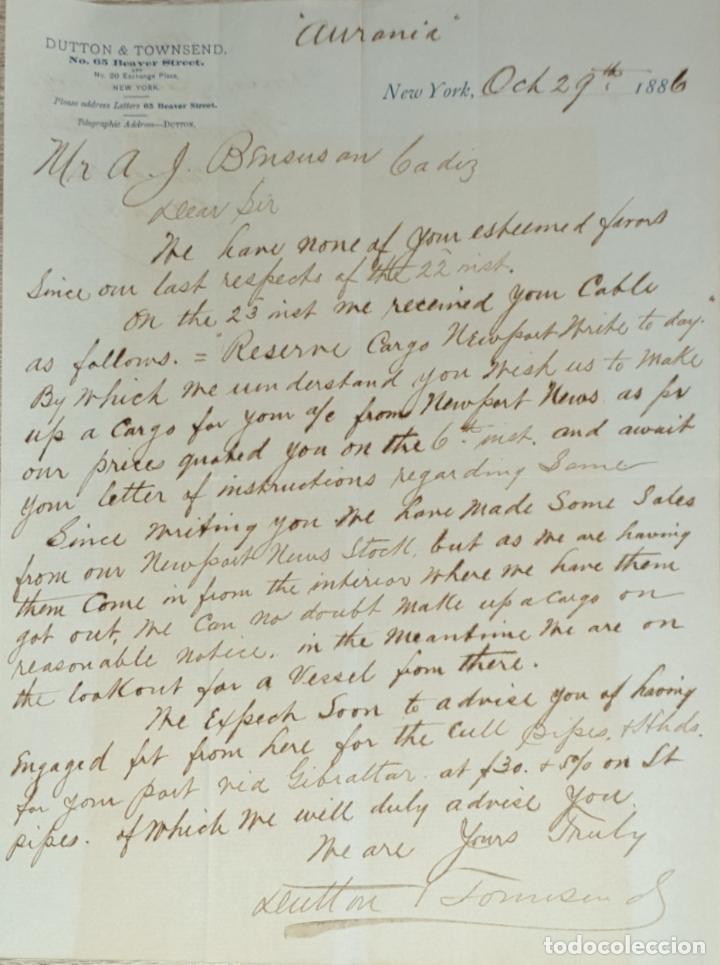 "Aurania"
DUTTON & TOWNSEND,
No. 65 Beaver Street.
AND
No. 20 Exchange Place,
NEW YORK.
Please address Letters 65 Beaver Street.
Telegraphic Address—DUTTON.
New York, Oct 29th. 1886
Mr A. J. Bensusan Cadiz
Dear Sir
We have none of your esteemed favors
Since our last respects of the 22 inst.
On the 23 inst we received your Cable
as follows. = "Reserve Cargo Newport Write to day."
By which we understand you wish us to make
up a Cargo for your a/c from Newport News as pr
our prices quoted you on the 6th inst. and await
your letter of instructions regarding Same
Since writing you we have made Some Sales
from our Newport News Stock, but as we are having
them Come in from the interior where we have them
got out, we Can no doubt make up a Cargo on
reasonable notice. in the meantime we are on
the lookout for a Vessel from there.
We Expect Soon to advise you of having
Engaged frt from here for the Cull Pipes. & Hhds.
for your port via Gibraltar at $30. & 5% on St
pipes. of which we will duly advise you.
We are Yours Truly
Dutton & Townsend
todocoleccion
todocoleccion.net